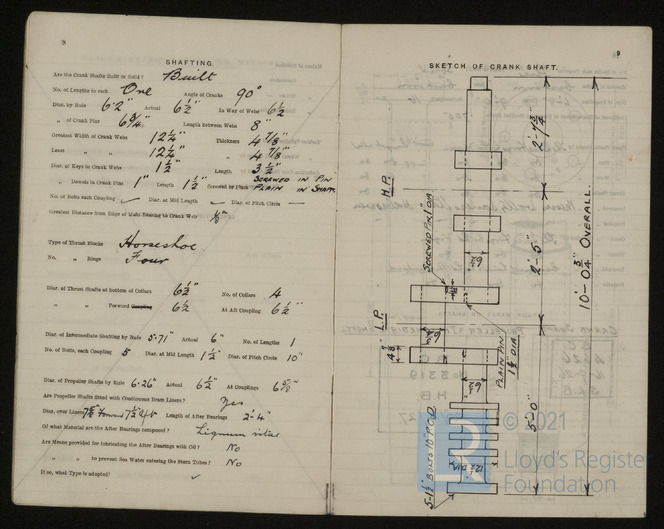 8
SHAFTING.
Are the Crank Shafts Built or Solid? Built
No. of Lengths in each One Angle of Cranks 90°
Diar. by Rule 6·2" Actual 6½" In Way of Webs 6½
„ of Crank Pins 6¾" Length between Webs 8"
Greatest Width of Crank Webs 12¼" Thickness 4⅞"
Least „ „ 12¼" „ 4⅞"
Diar. of Keys in Crank Webs 1½" Length 3½"
SCREWED IN PIN
„ Dowels in Crank Pins 1" Length 1½" Screwed or Plain PLAIN IN SHAFT
No. of Bolts each Coupling Diar. at Mid Length Diar. of Pitch Circle
Greatest Distance from Edge of Main Bearing to Crank Web
Type of Thrust Blocks Horseshoe
No. „ Rings Four
Diar. of Thrust Shafts at bottom of Collars 6½" No. of Collars 4
„ „ Forward Coupling 6½ At Aft Coupling 6½"
Diar. of Intermediate Shafting by Rule 5·71" Actual 6" No. of Lengths 1
No. of Bolts, each Coupling 5 Diar. at Mid Length 1½" Diar. of Pitch Circle 10"
Diar. of Propeller Shafts by Rule 6·26" Actual 6½" At Couplings 6⅝"
Are Propeller Shafts fitted with Continuous Brass Liners? Yes
Diar. over Liners 7⅝ Forward 7½ Aft Length of After Bearings 2'·4"
Of what Material are the After Bearings composed? Lignum vitae
Are Means provided for lubricating the After Bearings with Oil? No
„ „ to prevent Sea Water entering the Stern Tubes? No
If so, what Type is adopted?
9
SKETCH OF CRANK SHAFT.
H.P.
2'-7¾"
SCREWED PIN 1" DIA
6½"
2'-5"
10'-0¾" OVERALL.
L.P.
6¾"
4⅞"
PLAIN PIN 1½" DIA
6½"
5'-0"
12½" DIA
5-1½" BOLTS 10" P.C.D
© 2021
LR
Lloyd's Register
Foundation